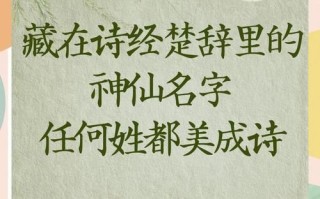 藏在诗经楚辞里的
神仙名字
任何姓都美成诗